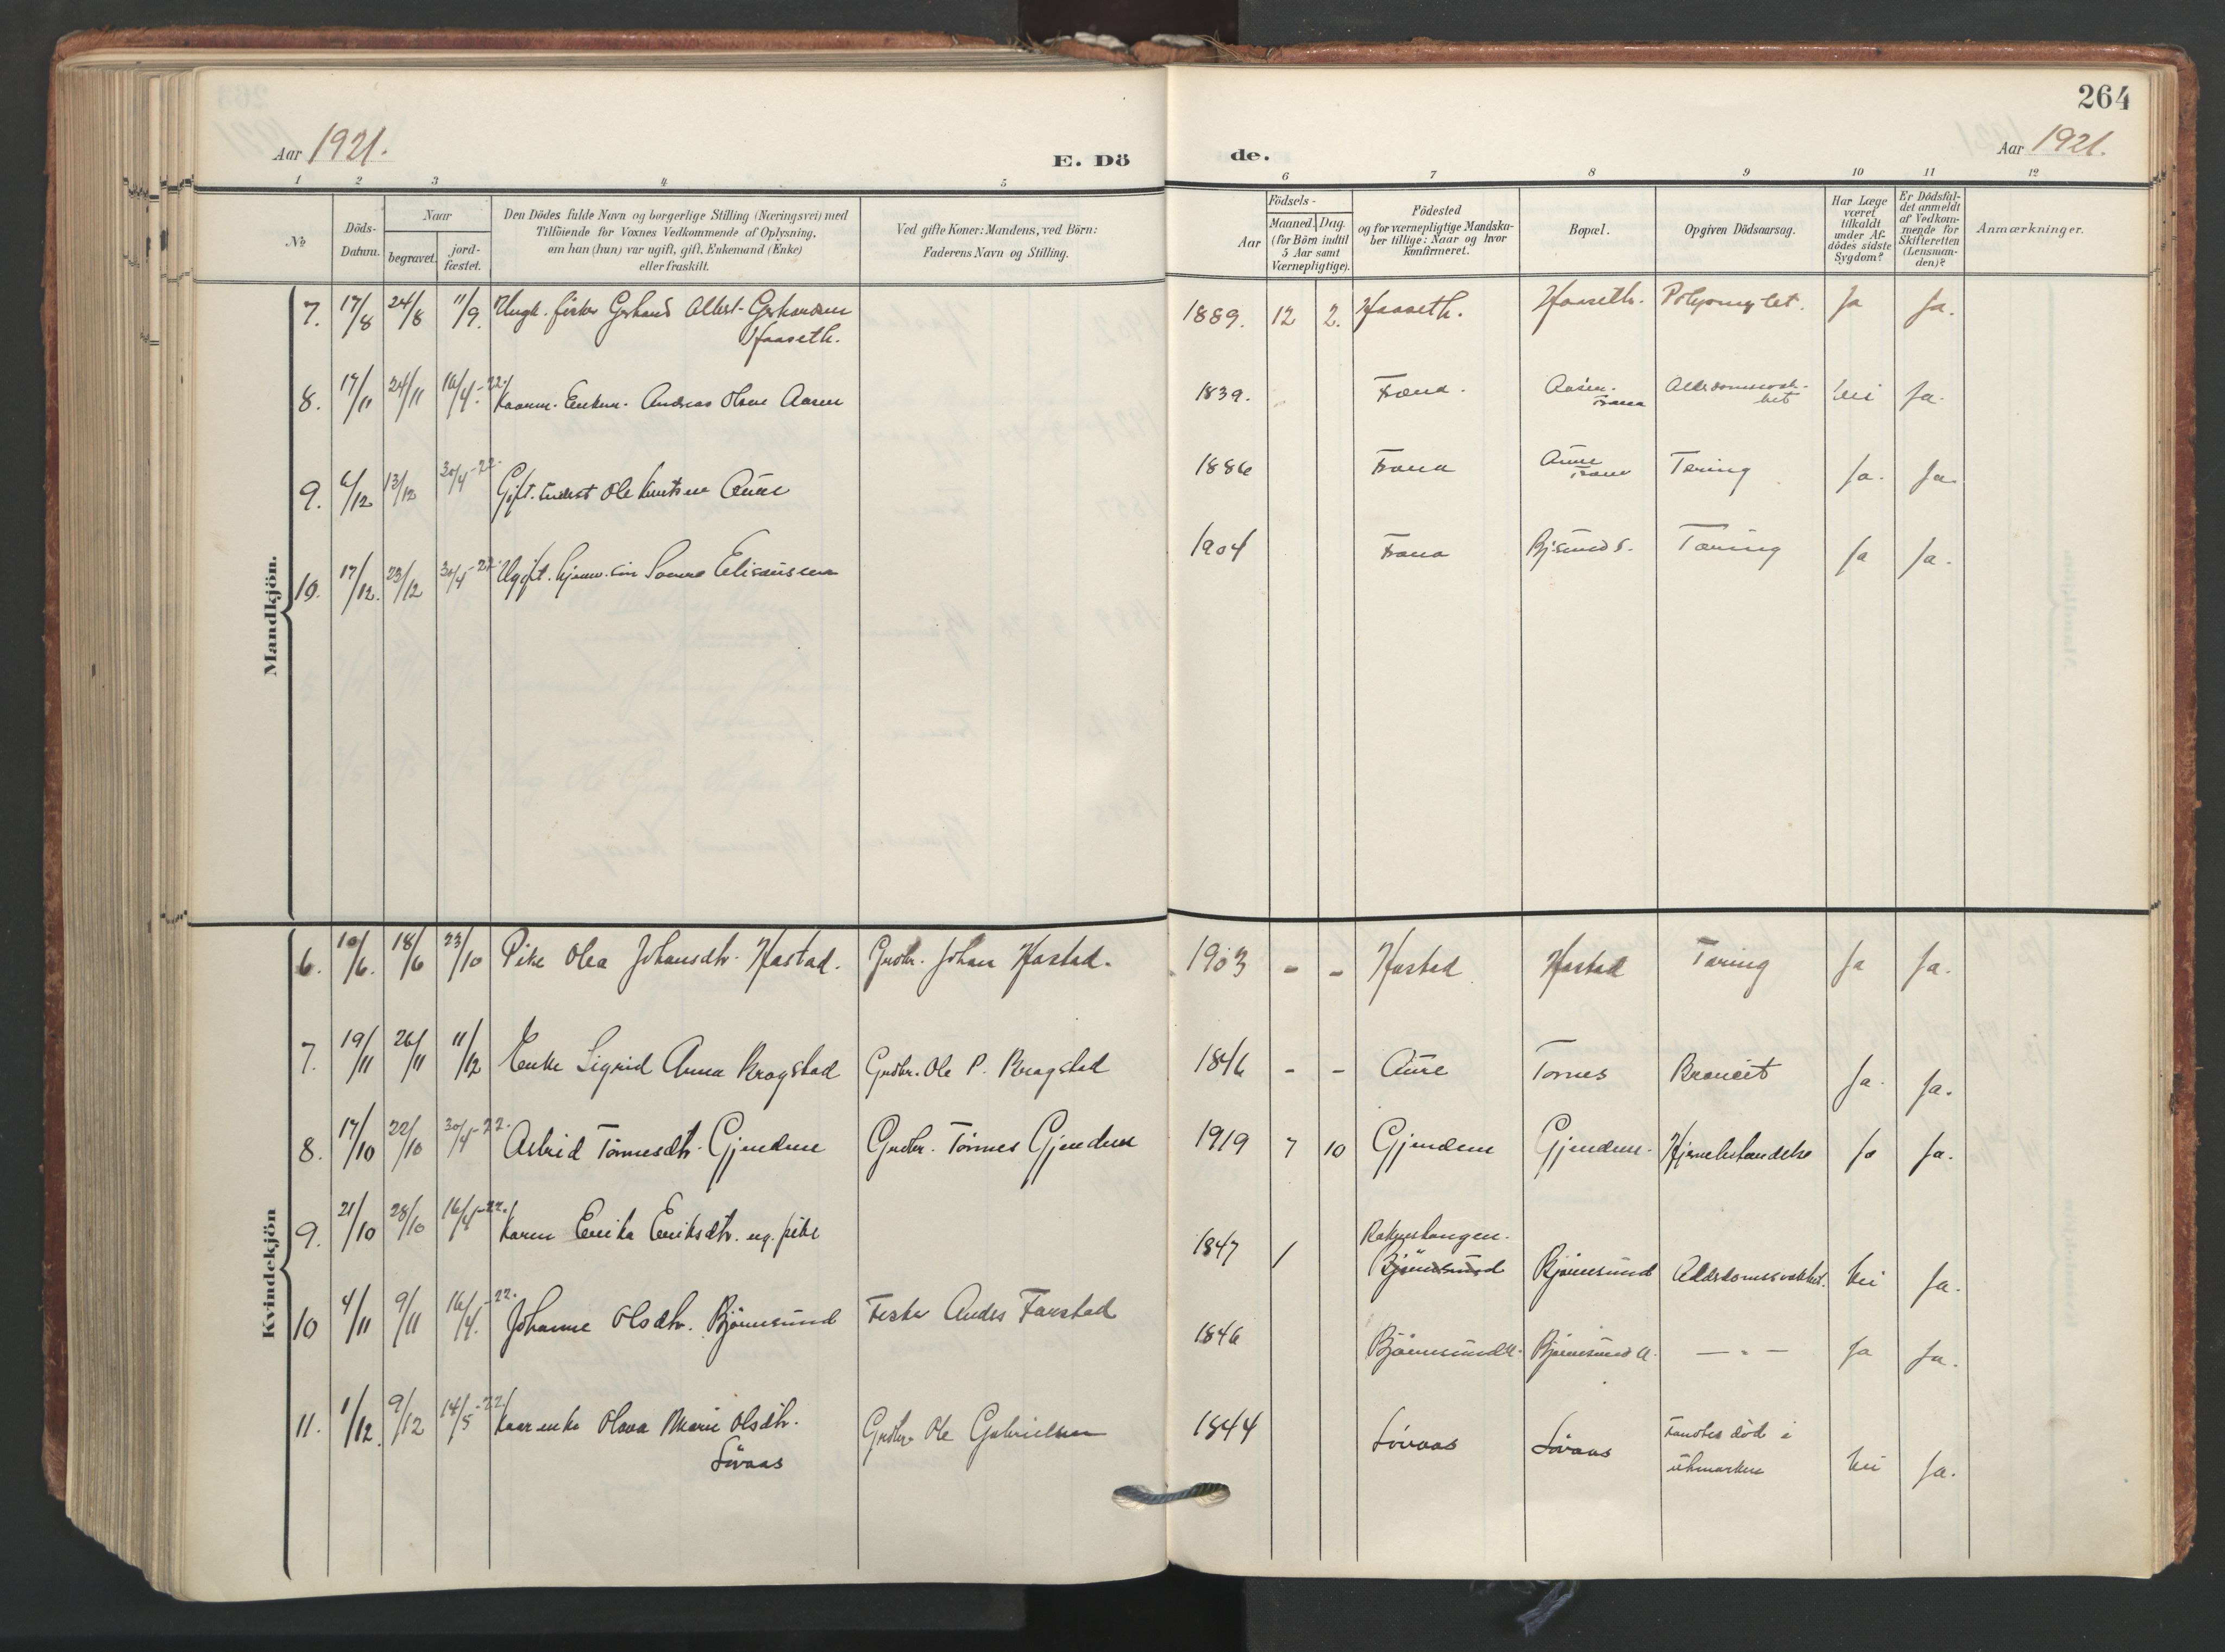 264
Aar 1921.
E. Dö
de.
Aar 1921.
1 2 3 4 5 6 7 8 9 10 11 12
№
Döds-
Datum.
Naar
begravet.
jord-
fæstet.
Den Dödes fulde Navn og borgerlige Stilling (Næringsvei) med
Tilföiende for Voxnes Vedkommende af Oplysning,
om han (hun) var ugift, gift, Enkemand (Enke)
eller fraskilt.
Ved gifte Koner: Mandens, ved Börn:
Faderens Navn og Stilling.
Födsels-
Aar
Maaned. Dag.
(for Börn indtil
5 Aar samt
Værnepligtige).
Födested
og for værnepligtige Mandska-
ber tillige: Naar og hvor
Konfirmeret.
Bopæl.
Opgiven Dödsaarsag.
Har Læge
været
tilkaldt
under Af-
dödes sidste
Sygdom?
Er Dödsfal-
det anmeldt
af Vedkom-
mende for
Skifteretten
(Lensman-
den)?
Anmærkninger.
Mandkjön.
7. 17/8 24/8 11/9. Ungk. fisker Gerhard Albert Gerhardsen 1889. 12 2. Haaseth. Haaseth. Ja Ja.
Haaseth.
8. 17/11 24/11 16/4-22. Andreas Olsen Aasen 1839. Fræna. Aasen. nei Ja.
Fræna
9. 6/12 13/12 30/4-22. Gift. Ole Knutsen Aune 1886 Fræna Aune Tæring Ja. Ja.
Fræna
10. 17/12. 23/12 30/4-22. Ugift. Eliseussen 1904 Fræna Bj.sund S. Tæring Ja Ja.
Kvindekjön
6. 10/6. 18/6 23/10 Pike Olea Johansdtr. Hastad. Grdbr. Johan Hastad. 1903 - - Hastad Hastad Tæring Ja Ja.
7. 19/11 26/11 11/12 Enke Sigrid Anna Krogstad Grdbr. Ole P. Krogstad 1846 - - Aure Tornes Broncit Ja. Ja.
8. 17/10 22/10 30/4-22. Astrid Tønnesdtr. Gjendem Grdbr. Tönnes Gjendem 1919 7 10 Gjendem Gjendem. Hjernebetændelse Ja Ja.
9. 21/10 28/10 16/4-22. Karen Erika Eriksdtr. ug. pike 1847 / Bjørnsund Bjørnsund Alderdomssvakhet. nei Ja.
10 4/11 9/11 16/4.-22. Johanne Olsdtr. Bjørnsund Fisker Anders Farstad 1846 Bjørnsund Bjørnsund — " — Ja Ja.
11. 1/12. 9/12 14/5-22 Olava Marie Olsdtr. Grdbr Ole Gabrielsen 1844 Lövaas Lövaas Fandtes död i nei Ja.
Lövaas
utmarken